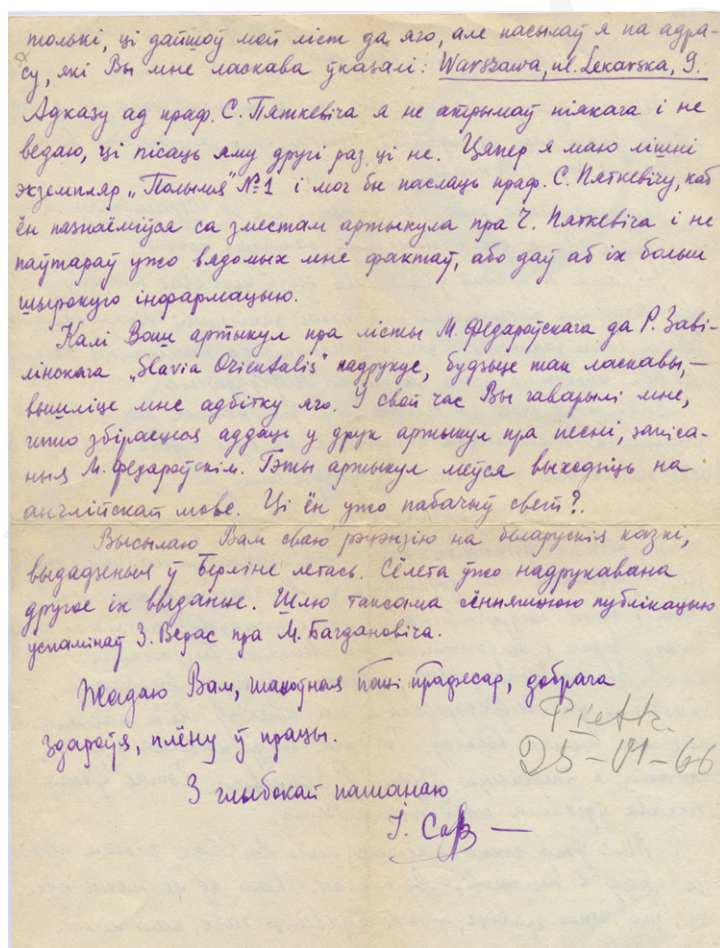 толькі, ці дайшоў мой ліст да яго, але насылаў я на адра-
су, які Вы мне ласкава ўказалі: Warszawa, ul. Lekarska, 9.
Адказу ад праф. С. Пяткевіча я не атрымаў ніякага і не
ведаю, ці пісаць яму другі раз ці не. Цяпер я маю лішні
экземпляр „Полымя" №1 і мог бы паслаць праф. С. Пяткевічу, каб
ён пазнаёміўся са зместам артыкула пра Ч. Пяткевіча і не
паўтараў ужо вядомых мне фактаў, або даў аб іх больш
шырокую інфармацыю.
Калі Ваш артыкул пра лісты М. Федароўскага да Р. Заві-
лінскага „Slavia Orientalis" надрукуе, будзьце так ласкавы, —
вышліце мне адбітку яго. У свой час Вы гаварылі мне,
што збіраецеся аддаць у друк артыкул пра песні, запіса-
ныя М. Федароўскім. Гэты артыкул меўся выходзіць на
англійскай мове. Ці ён ужо пабачыў свет?.
Высылаю Вам сваю рэцэнзію на беларускія казкі,
выдадзеныя ў Берліне летась. Сёлета ўжо надрукавана
другое іх выданне. Шлю таксама сённяшнюю публікацыю
успамінаў З. Верас пра М. Багдановіча.
Жадаю Вам, шаноўная Пані Прафесар, добрага
здароўя, плёну ў працы.
З глыбокай пашанаю
25-VI-66